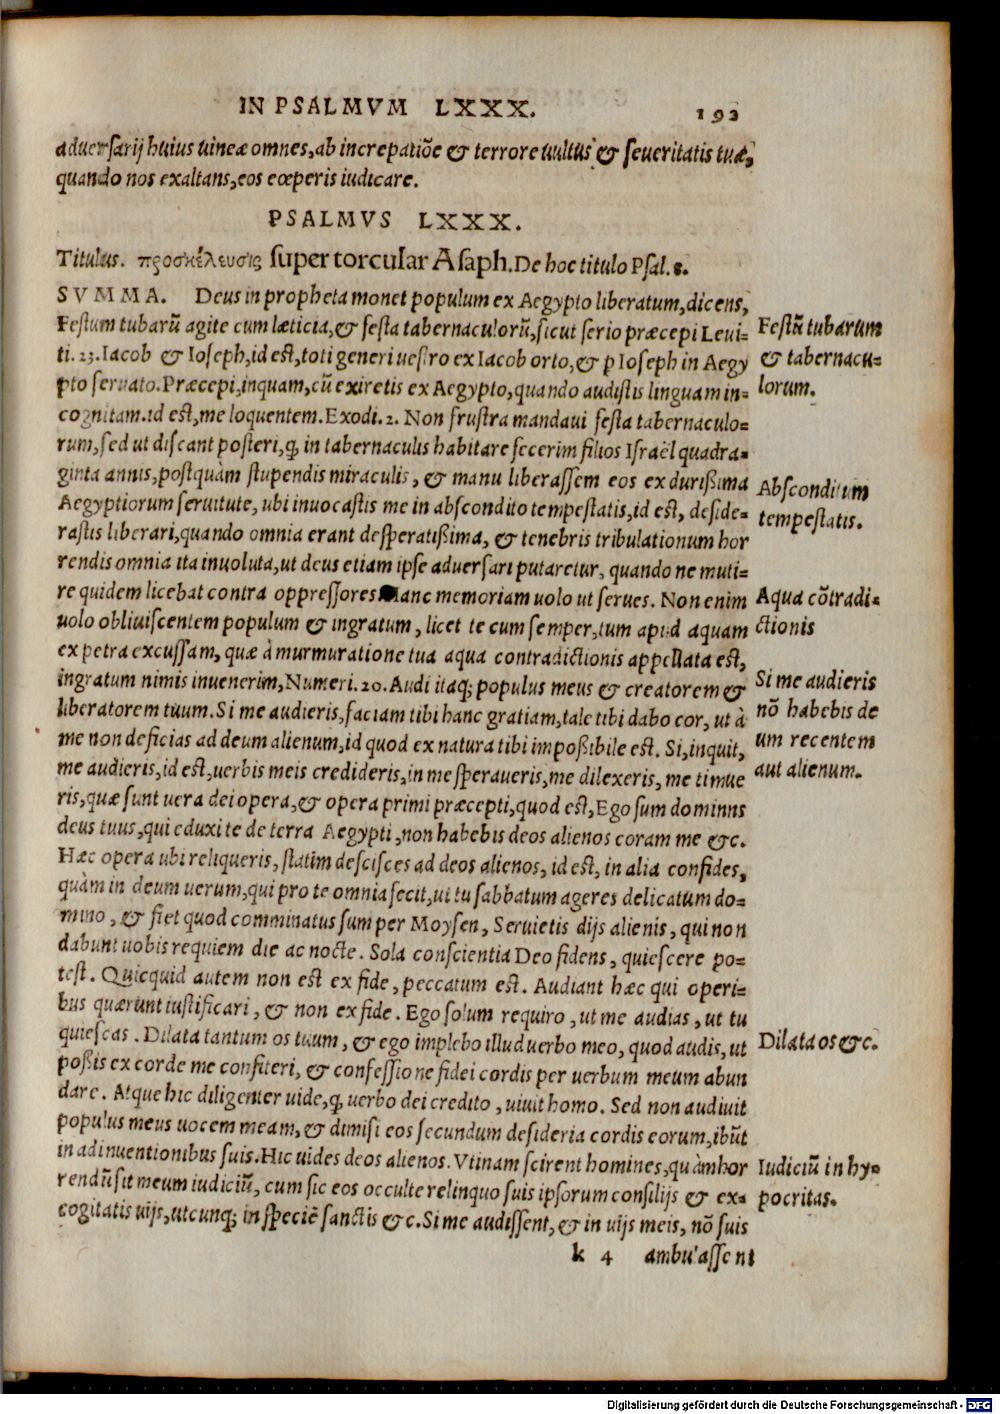 IN PSALMVM LXXX. 192
aduersarij huius uineæ omnes, ab increpatiõe & terrore uultus & seueritatis tuæ,
quando nos exaltans, eos cœperis iudicare.
PSALMVS LXXX.
Titulus. προσκέλευσις super torcular Asaph. De hoc titulo Psal. 8.
SVMMA. Deus in propheta monet populum ex Aegypto liberatum, dicens,
Festum tubarũ agite cum læticia, & festa tabernaculorũ, sicut serio præcepi Leui-
ti. 23. Iacob & Ioseph, id est, toti generi uestro ex Iacob orto, & p Ioseph in Aegy
pto seruato. Præcepi, inquam, cũ exiretis ex Aegypto, quando audistis linguam in-
cognitam. id est, me loquentem. Exodi. 2. Non frustra mandaui festa tabernaculo-
rum, sed ut discant posteri, ꝙ in tabernaculis habitare fecerim filios Israël quadra-
ginta annis, postquàm stupendis miraculis, & manu liberassem eos ex durißima
Aegyptiorum seruitute, ubi inuocastis me in abscondito tempestatis, id est, deside-
rastis liberari, quando omnia erant desperatißima, & tenebris tribulationum hor
rendis omnia ita inuoluta, ut deus etiam ipse aduersari putaretur, quando ne muti-
re quidem licebat contra oppressores. Hanc memoriam uolo ut serues. Non enim
uolo obliuiscentem populum & ingratum, licet te cum semper, tum apud aquam
ex petra excussam, quæ à murmuratione tua aqua contradictionis appellata est,
ingratum nimis inuenerim, Numeri. 20. Audi itaq; populus meus & creatorem &
liberatorem tuum. Si me audieris, faciam tibi hanc gratiam, tale tibi dabo cor, ut à
me non deficias ad deum alienum, id quod ex natura tibi impoßibile est. Si, inquit,
me audieris, id est, uerbis meis credideris, in me speraueris, me dilexeris, me timue
ris, quæ sunt uera dei opera, & opera primi præcepti, quod est, Ego sum dominns
deus tuus, qui eduxi te de terra Aegypti, non habebis deos alienos coram me &c.
Hæc opera ubi reliqueris, statim descisces ad deos alienos, id est, in alia confides,
quàm in deum uerum, qui pro te omnia fecit, ut tu sabbatum ageres delicatum do-
mino, & fiet quod comminatus sum per Moysen, Seruietis dijs alienis, qui non
dabunt uobis requiem die ac nocte. Sola conscientia Deo fidens, quiescere po-
test. Quicquid autem non est ex fide, peccatum est. Audiant hæc qui operi-
bus quærunt iustificari, & non ex fide. Ego solum requiro, ut me audias, ut tu
quiescas. Dilata tantum os tuum, & ego implebo illud uerbo meo, quod audis, ut
poßis ex corde me confiteri, & confessione fidei cordis per uerbum meum abun
dare. Atque hic diligenter uide, ꝙ uerbo dei credito, uiuit homo. Sed non audiuit
populus meus uocem meam, & dimisi eos secundum desideria cordis eorum, ibũt
in adinuentionibus suis. Hic uides deos alienos. Vtinam scirent homines, quàm hor
rendũ sit meum iudiciũ, cum sic eos occulte relinquo suis ipsorum consilijs & ex-
cogitatis uijs, utcunq; in speciẽ sanctis &c. Si me audissent, & in uijs meis, nõ suis
k 4 ambulassent
Festũ tubarum
& tabernacu-
lorum.
Absconditum
tempestatis.
Aqua cõtradi-
ctionis
Si me audieris
nõ habebis de
um recentem
aut alienum.
Dilata os &c.
Iudiciũ in hy-
pocritas.
Digitalisierung gefördert durch die Deutsche Forschungsgemeinschaft - DFG